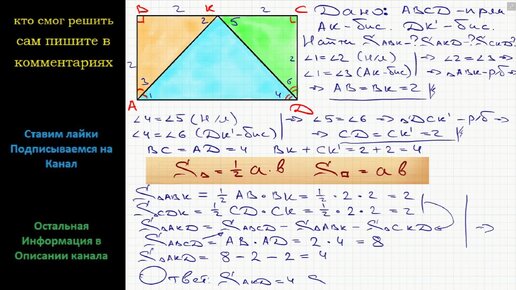 кто смог решить
сам пишите в
комментариях
Ставим лайки
Подписываемся на
Канал
Остальная
Информация в
Описании канала
B 2 K 2 C
2 5 2
3 6
A 1 4 D
Дано: ABCD - прям
AK - бис. DK' - бис.
Найти S△ABK-? S△AKD-? S△KCD-?
∠1=∠2 (Н/Л) ⇒ ∠2=∠3 ⇒
∠1=∠3 (AK-бис) ⇒ △ABK-р/б ⇒
⇒ AB=BK=2
∠4=∠5 (Н/Л) ⇒ ∠5=∠6 ⇒ △DCK'-р/б ⇒
∠4=∠6 (DK'-бис) ⇒ CD=CK'=2
BC=AD=4 BK+CK'=2+2=4
S△=½a·b S□=ab
S△ABK=½AB·BK=½·2·2=2
S△CDK=½CD·CK=½·2·2=2
S△AKD=S□ABCD-S△ABK-S△CKD
S□ABCD=AB·AD=2·4=8
S△AKD=8-2-2=4
Ответ: S△AKD=4